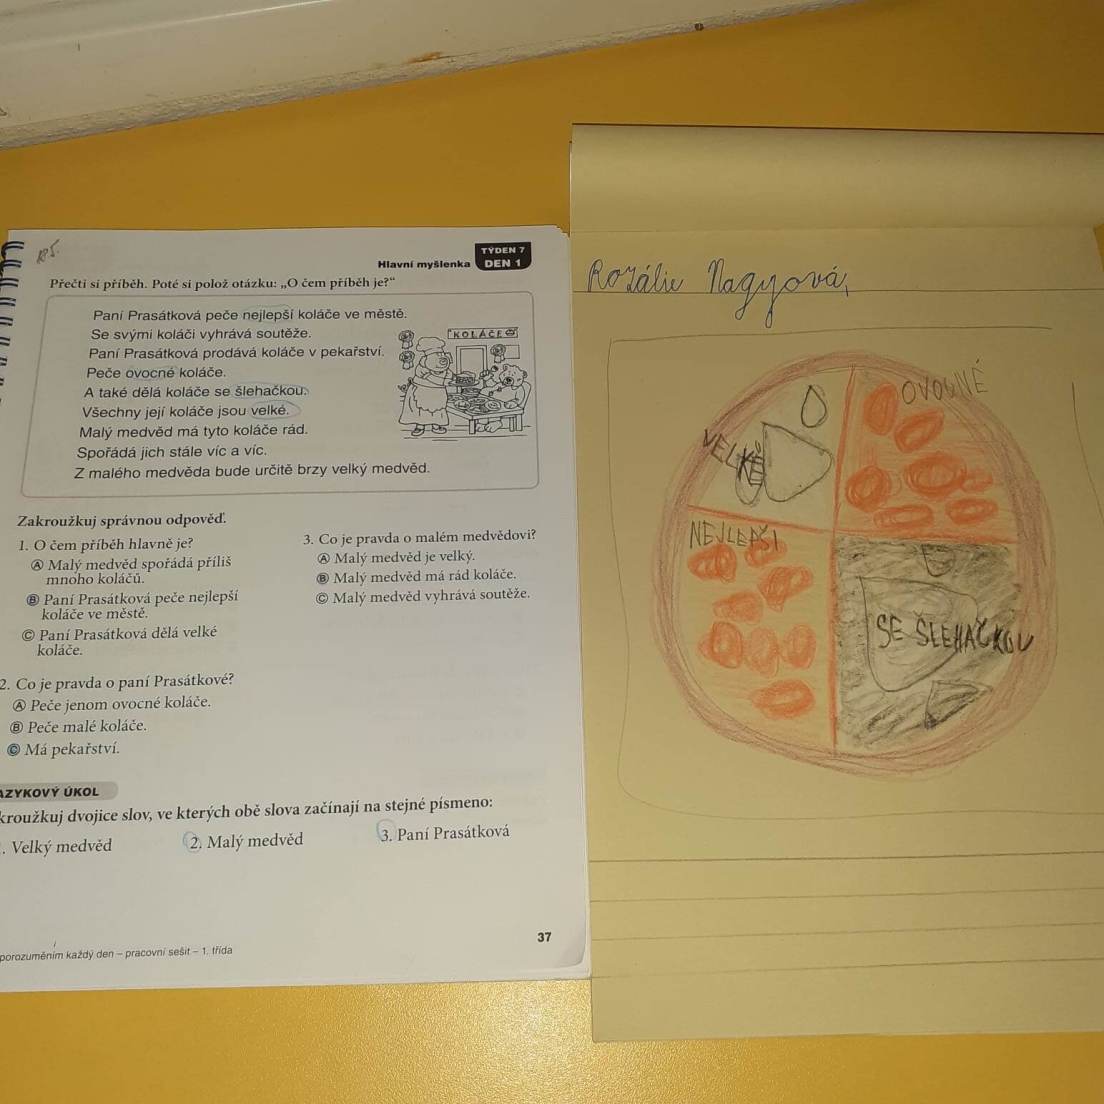 TÝDEN 7
Hlavní myšlenka DEN 1
Přečti si příběh. Poté si polož otázku: „O čem příběh je?“
Paní Prasátková peče nejlepší koláče ve městě.
Se svými koláči vyhrává soutěže.
Paní Prasátková prodává koláče v pekařství.
Peče ovocné koláče.
A také dělá koláče se šlehačkou.
Všechny její koláče jsou velké.
Malý medvěd má tyto koláče rád.
Spořádá jich stále víc a víc.
Z malého medvěda bude určitě brzy velký medvěd.
KOLÁČE
Zakroužkuj správnou odpověď.
1. O čem příběh hlavně je?
Ⓐ Malý medvěd spořádá příliš
mnoho koláčů.
Ⓑ Paní Prasátková peče nejlepší
koláče ve městě.
Ⓒ Paní Prasátková dělá velké
koláče.
2. Co je pravda o paní Prasátkové?
Ⓐ Peče jenom ovocné koláče.
Ⓑ Peče malé koláče.
Ⓒ Má pekařství.
3. Co je pravda o malém medvědovi?
Ⓐ Malý medvěd je velký.
Ⓑ Malý medvěd má rád koláče.
Ⓒ Malý medvěd vyhrává soutěže.
AZYKOVÝ ÚKOL
kroužkuj dvojice slov, ve kterých obě slova začínají na stejné písmeno:
. Velký medvěd 2. Malý medvěd 3. Paní Prasátková
37
porozuměním každý den – pracovní sešit – 1. třída
Rozálie Nagyová,
OVOCNÉ
VELKÉ
NEJLEPŠI
SE ŠLEHAČKOU